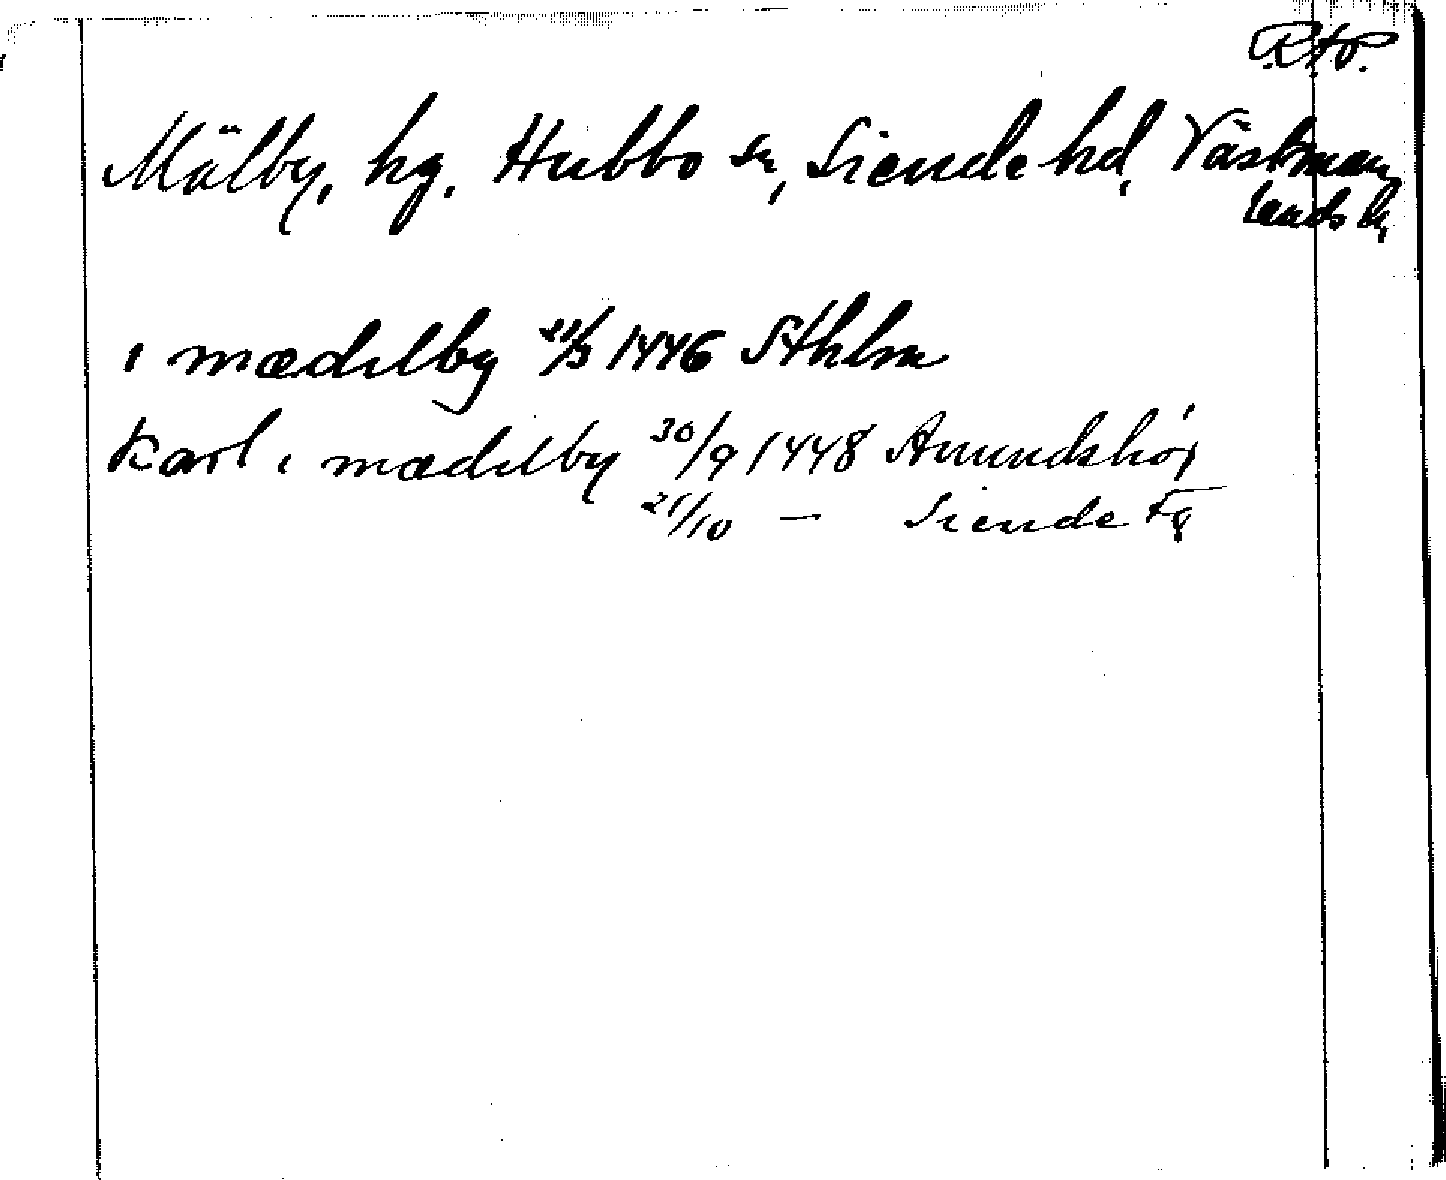 Mälby, hg. Hubbo sn, Siende hd, Västman
lands l.
i mædelby 21/3 1446 Sthlm
Karl i mædelby 30/9 1448 Anundshög
21/10 — Siende tg